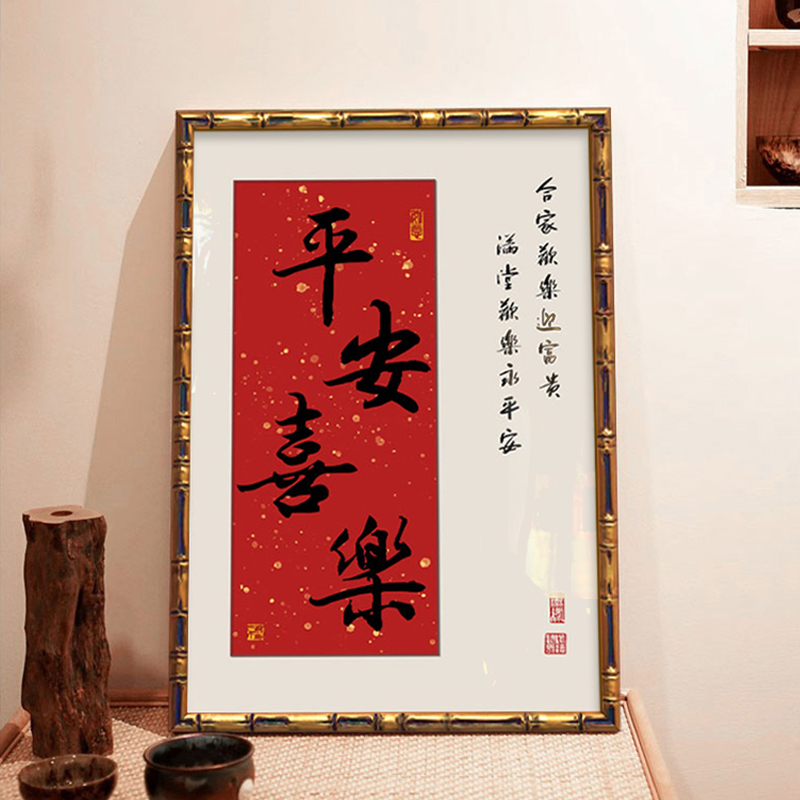 合家歡樂迎富貴
滿堂歡樂永平安
平安喜樂